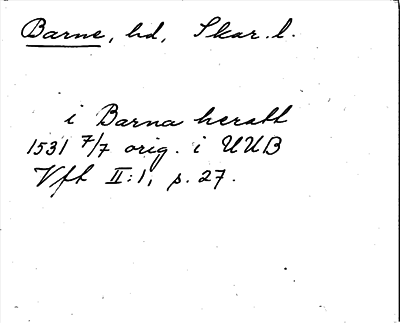 Barne, hd, Skar. l.
i Barna heratt
1531 7/7 orig. i UUB
Vft II:1, p. 27.